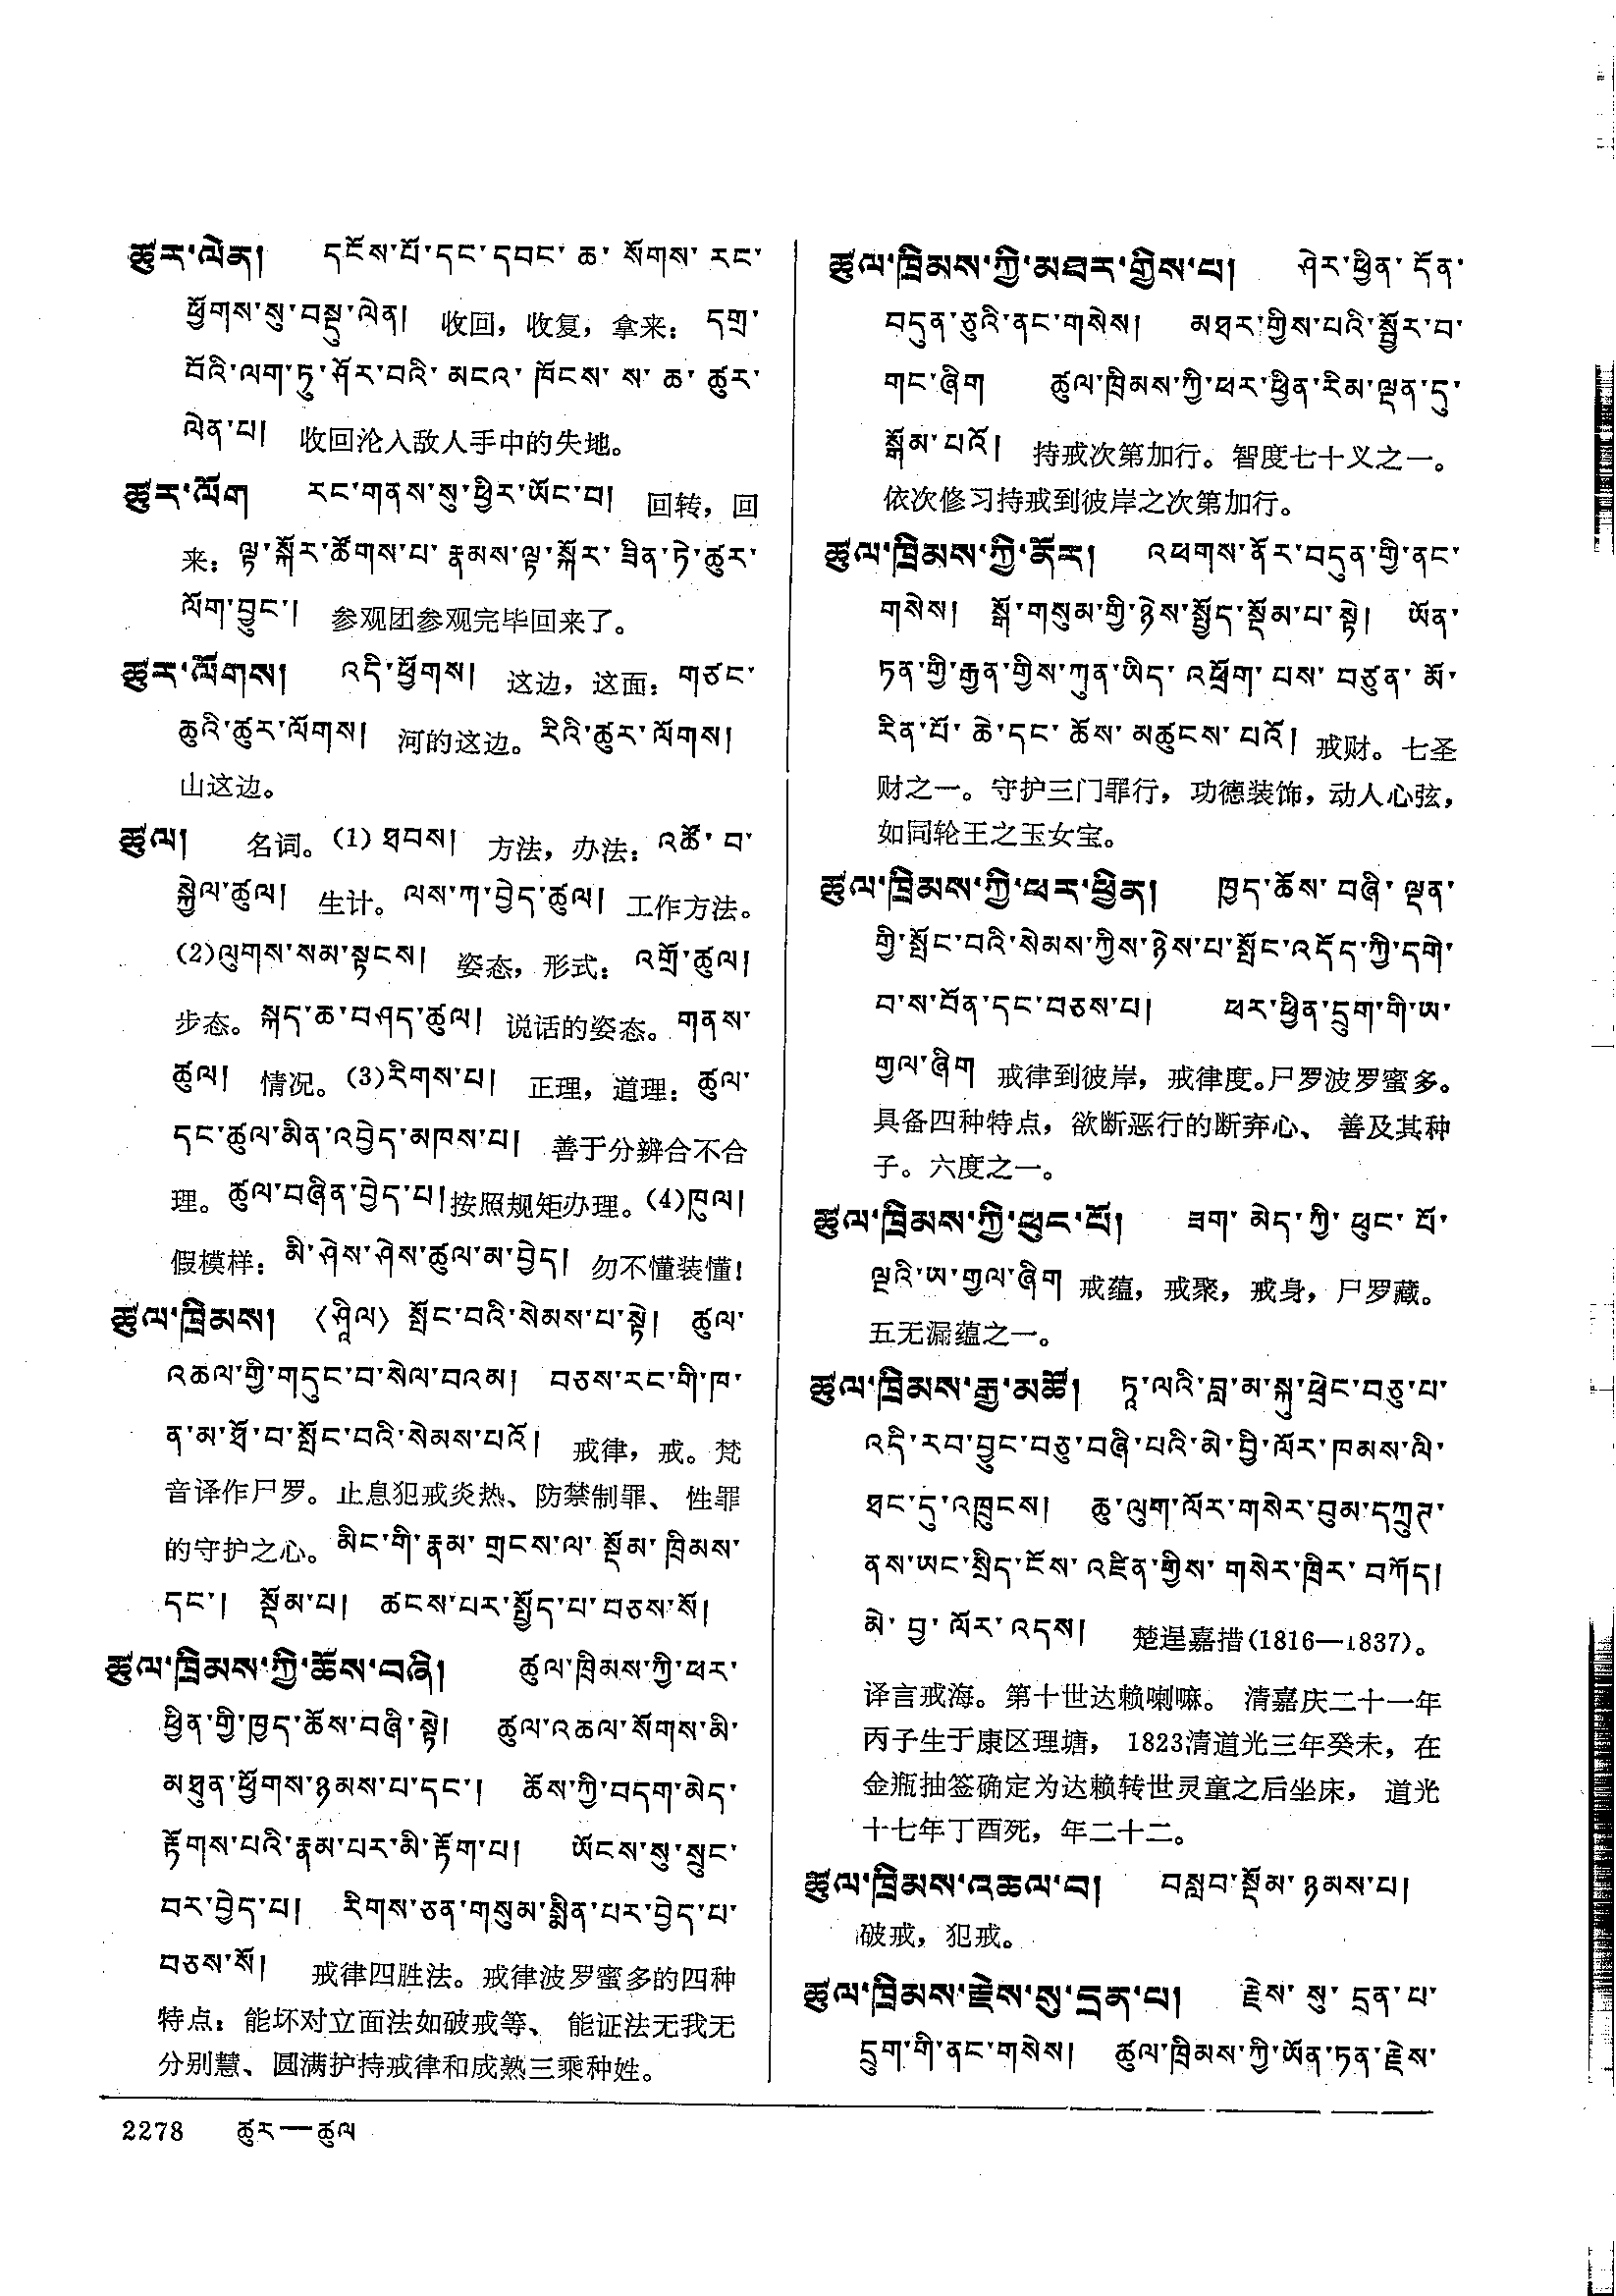 ཚུར་ལེན། དངོས་པོ་དང་དབང་ཆ་སོགས་རང་
ཕྱོགས་སུ་བསྡུ་ལེན། 收回，收复，拿来：དགྲ་
བོའི་ལག་ཏུ་ཤོར་བའི་མངའ་ཁོངས་ས་ཆ་ཚུར་
ལེན་པ། 收回沦入敌人手中的失地。
ཚུར་ལོག རང་གནས་སུ་ཕྱིར་ཡོང་བ། 回转，回
来：ལྟ་སྐོར་ཚོགས་པ་རྣམས་ལྟ་སྐོར་ཟིན་ཏེ་ཚུར་
ལོག་བྱུང་། 参观团参观完毕回来了。
ཚུར་ལོགས། འདི་ཕྱོགས། 这边，这面：གཙང་
ཆུའི་ཚུར་ལོགས། 河的这边。རིའི་ཚུར་ལོགས།
山这边。
ཚུལ། 名词。(1)ཐབས། 方法，办法：འཚོ་བ་
སྐྱེལ་ཚུལ། 生计。ལས་ཀ་བྱེད་ཚུལ། 工作方法。
(2)ལུགས་སམ་སྟངས། 姿态，形式：འགྲོ་ཚུལ།
步态。སྐད་ཆ་བཤད་ཚུལ། 说话的姿态。གནས་
ཚུལ། 情况。(3)རིགས་པ། 正理，道理：ཚུལ་
དང་ཚུལ་མིན་འབྱེད་མཁས་པ། 善于分辨合不合
理。ཚུལ་བཞིན་བྱེད་པ།按照规矩办理。(4)ཁུལ།
假模样：མི་ཤེས་ཤེས་ཚུལ་མ་བྱེད། 勿不懂装懂！
ཚུལ་ཁྲིམས། 〈ཤཱིལ〉 སྤོང་བའི་སེམས་པ་སྟེ། ཚུལ་
འཆལ་གྱི་གདུང་བ་སེལ་བའམ། བཅས་རང་གི་ཁ་
ན་མ་ཐོ་བ་སྤོང་བའི་སེམས་པའོ། 戒律，戒。梵
音译作尸罗。止息犯戒炎热、防禁制罪、性罪
的守护之心。མིང་གི་རྣམ་གྲངས་ལ་སྡོམ་ཁྲིམས་
དང་། སྡོམ་པ། ཚངས་པར་སྤྱོད་པ་བཅས་སོ།
ཚུལ་ཁྲིམས་ཀྱི་ཆོས་བཞི། ཚུལ་ཁྲིམས་ཀྱི་ཕར་
ཕྱིན་གྱི་ཁྱད་ཆོས་བཞི་སྟེ། ཚུལ་འཆལ་སོགས་མི་
མཐུན་ཕྱོགས་ཉམས་པ་དང་། ཆོས་ཀྱི་བདག་མེད་
རྟོགས་པའི་རྣམ་པར་མི་རྟོག་པ། ཡོངས་སུ་སྲུང་
བར་བྱེད་པ། རིགས་ཅན་གསུམ་སྨིན་པར་བྱེད་པ་
བཅས་སོ། 戒律四胜法。戒律波罗蜜多的四种
特点：能坏对立面法如破戒等、能证法无我无
分别慧、圆满护持戒律和成熟三乘种姓。
ཚུལ་ཁྲིམས་ཀྱི་མཐར་གྱིས་པ། ཤེར་ཕྱིན་དོན་
བདུན་ཅུའི་ནང་གསེས། མཐར་གྱིས་པའི་སྦྱོར་བ་
གང་ཞིག ཚུལ་ཁྲིམས་ཀྱི་ཕར་ཕྱིན་རིམ་ལྡན་དུ་
སྒོམ་པའོ། 持戒次第加行。智度七十义之一。
依次修习持戒到彼岸之次第加行。
ཚུལ་ཁྲིམས་ཀྱི་ནོར། འཕགས་ནོར་བདུན་གྱི་ནང་
གསེས། སྒོ་གསུམ་གྱི་ཉེས་སྤྱོད་སྡོམ་པ་སྟེ། ཡོན་
ཏན་གྱི་རྒྱན་གྱིས་ཀུན་ཡིད་འཕྲོག་པས་བཙུན་མོ་
རིན་པོ་ཆེ་དང་ཆོས་མཚུངས་པའོ། 戒财。七圣
财之一。守护三门罪行，功德装饰，动人心弦，
如同轮王之玉女宝。
ཚུལ་ཁྲིམས་ཀྱི་ཕར་ཕྱིན། ཁྱད་ཆོས་བཞི་ལྡན་
གྱི་སྤོང་བའི་སེམས་ཀྱིས་ཉེས་པ་སྤོང་འདོད་ཀྱི་དགེ་
བ་ས་བོན་དང་བཅས་པ། ཕར་ཕྱིན་དྲུག་གི་ཡ་
གྱལ་ཞིག 戒律到彼岸，戒律度。尸罗波罗蜜多。
具备四种特点，欲断恶行的断弃心、善及其种
子。六度之一。
ཚུལ་ཁྲིམས་ཀྱི་ཕུང་པོ། ཟག་མེད་ཀྱི་ཕུང་པོ་
ལྔའི་ཡ་གྱལ་ཞིག 戒蕴，戒聚，戒身，尸罗藏。
五无漏蕴之一。
ཚུལ་ཁྲིམས་རྒྱ་མཚོ། ཏཱ་ལའི་བླ་མ་སྐུ་ཕྲེང་བཅུ་པ་
འདི་རབ་བྱུང་བཅུ་བཞི་པའི་མེ་བྱི་ལོར་ཁམས་ལི་
ཐང་དུ་འཁྲུངས། ཆུ་ལུག་ལོར་གསེར་བུམ་དཀྲུཊ་
ནས་ཡང་སྲིད་ངོས་འཛིན་གྱིས་གསེར་ཁྲིར་བཀོད།
མེ་བྱ་ལོར་འདས། 楚逞嘉措(1816—1837)。
译言戒海。第十世达赖喇嘛。清嘉庆二十一年
丙子生于康区理塘，1823清道光三年癸未，在
金瓶抽签确定为达赖转世灵童之后坐床，道光
十七年丁酉死，年二十二。
ཚུལ་ཁྲིམས་འཆལ་བ། བསླབ་སྡོམ་ཉམས་པ།
破戒，犯戒。
ཚུལ་ཁྲིམས་རྗེས་སུ་དྲན་པ། རྗེས་སུ་དྲན་པ་
དྲུག་གི་ནང་གསེས། ཚུལ་ཁྲིམས་ཀྱི་ཡོན་ཏན་རྗེས་
2278 ཚུར—ཚུལ